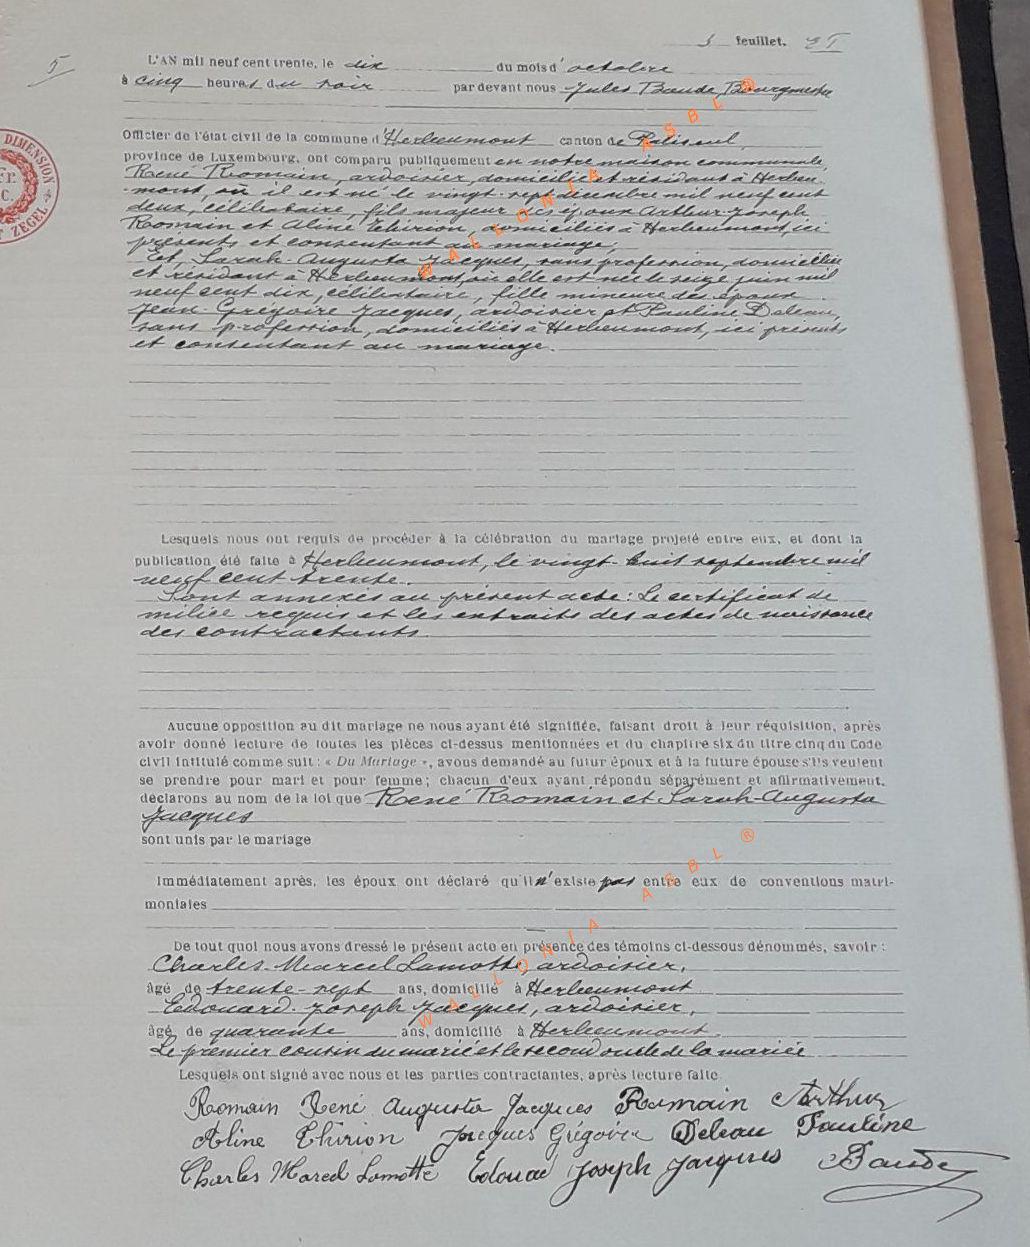 5 feuillet.
5
L'AN mil neuf cent trente, le dix du mois d'octobre
à cinq heures du soir par devant nous Jules Baude, Bourgmestre
Officier de l'état civil de la commune d'Herbeumont canton de Paliseul,
province de Luxembourg, ont comparu publiquement en notre maison communale,
René Romain, ardoisier, domicilié et résidant à Herbeu-
mont, où il est né le vingt-sept décembre mil neuf cent
deux, célibataire, fils majeur des époux Arthur-Joseph
Romain et Aline Thirion, domiciliés à Herbeumont, ici
présents et consentant au mariage;
Et, Sarah-Augusta Jacques, sans profession, domiciliée
et résidant à Herbeumont, où elle est née le seize juin mil
neuf cent dix, célibataire, fille mineure des époux
Jean-Grégoire Jacques, ardoisier et Pauline Deleau,
sans profession, domiciliés à Herbeumont, ici présents
et consentant au mariage.
Lesquels nous ont requis de procéder à la célébration du mariage projeté entre eux, et dont la
publication été faite à Herbeumont, le vingt-huit septembre mil
neuf cent trente.
Sont annexés au présent acte: Le certificat de
milice requis et les extraits des actes de naissance
des contractants.
Aucune opposition au dit mariage ne nous ayant été signifiée, faisant droit à leur réquisition, après
avoir donné lecture de toutes les pièces ci-dessus mentionnées et du chapitre six du titre cinq du Code
civil intitulé comme suit: « Du Mariage », avous demandé au futur époux et à la future épouse s'ils veulent
se prendre pour mari et pour femme; chacun d'eux ayant répondu séparément et affirmativement,
déclarons au nom de la loi que René Romain et Sarah-Augusta
Jacques
sont unis par le mariage
Immédiatement après, les époux ont déclaré qu'il n'existe pas entre eux de conventions matri-
moniales
De tout quoi nous avons dressé le présent acte en présence des témoins ci-dessous dénommés, savoir:
Charles-Marcel Lamotte, ardoisier,
âgé de trente-sept ans, domicilié à Herbeumont
Edouard-Joseph Jacques, ardoisier,
âgé de quarante ans, domicilié à Herbeumont.
Le premier cousin du marié et le second oncle de la mariée
Lesquels ont signé avec nous et les parties contractantes, après lecture faite
Romain René Augusta Jacques Romain Arthur
Aline Thirion Jacques Grégoire Deleau Pauline
Charles Marcel Lamotte Edouard Joseph Jacques Baude
DIMENSION
ZEGEL
WALLONIA ASBL ®
WALLONIA ASBL ®